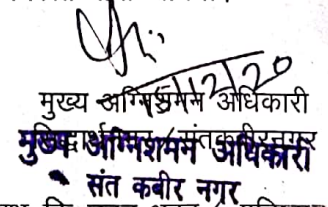 15/12/20
मुख्य अग्निशमन अधिकारी
सिद्धार्थनगर / संतकबीरनगर
मुख्य अग्निशमन अधिकारी
संत कबीर नगर